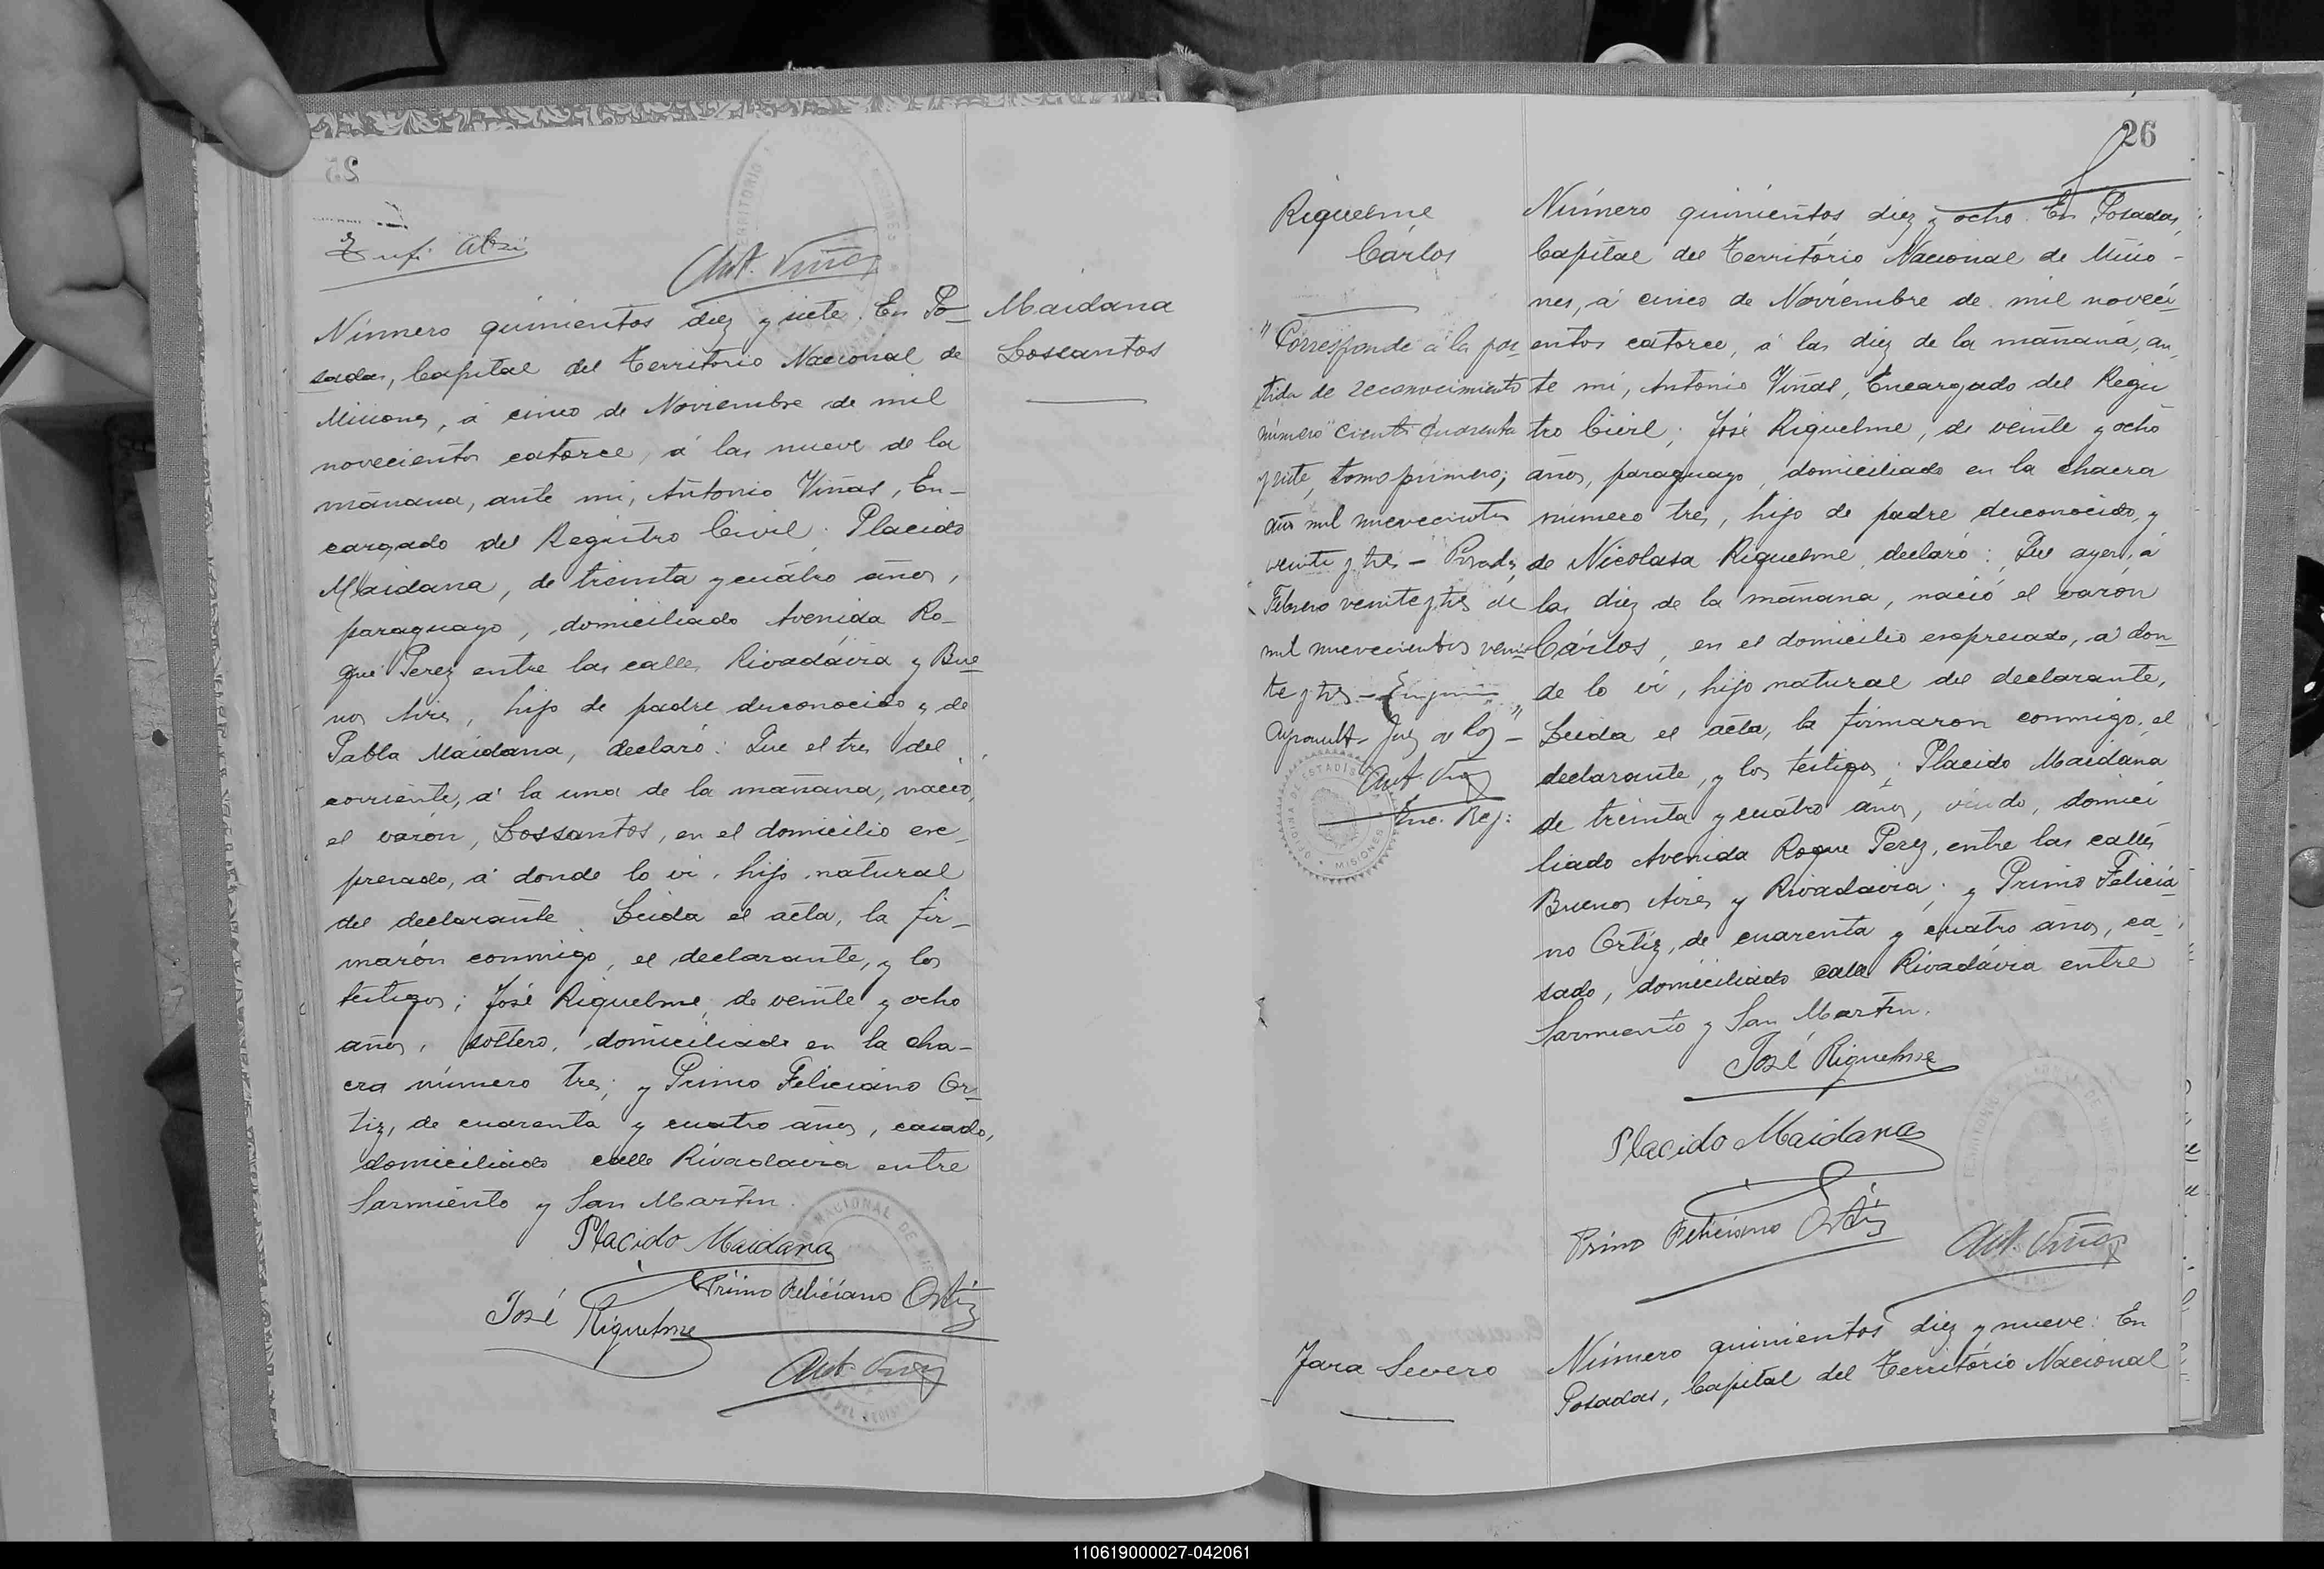 Ant. Viñas
Número quinientos diez y siete. En Po_
sadas, Capital del Territorio Nacional de
Misiones, á cinco de Noviembre de mil
novecientos catorce, á las nueve de la
mañana, ante mi, Antonio Viñas, En_
cargado del Registro Civil; Placido
Maidana, de treinta y cuátro años,
paraguayo, domiciliado Avenida Ro_
que Perez entre las calles Rivadávia y Bue_
nos Aires, hijo de padre desconocido y de
Pabla Maidana, declaró: Que el tres del
corriente, á la una de la mañana, nació,
el varón, Lossantos, en el domicilio ex_
presado, á donde lo vi, hijo natural
del declarante. Leida el acta, la fir_
marón conmigo, el declarante, y los
testigos; José Riquelme, de veinte y ocho
años, soltero, domiciliado en la cha_
cra número tres; y Primo Feliciano Or_
tiz, de cuarenta y cuatro años, casado,
domiciliado calle Rivadavia entre
Sarmiento y San Martin.
Placido Maidana
Primo Feliciano Ortiz
José Riquelme
Ant. Viñas
Maidana
Lossantos
26
Riquelme
Cárlos
"Corresponde á la par_
tida de reconocimiento
número "ciento cuarenta
y siete, tomo primero;
año mil nuevecientos
veinte y tres – Posadas,
Febrero veinte y tres de
mil nuevecientos vein_
te y tres –
Juez de Paz" –
Ant. Viñas
Enc. Reg:
OFICINA DE ESTADIS
MISIONES
Número quinientos diez y ocho. En Posadas,
Capital del Território Nacional de Misio-
nes, á cinco de Noviembre de mil noveci_
entos catorce, á las diez de la mañana, an_
te mi, Antonio Viñas, Encargado del Regis
tro Civil; José Riquelme, de veinte y ocho
años, paraguayo, domiciliado en la chacra
número tres, hijo de padre desconocido, y
de Nicolasa Riquelme, declaró: Que ayer, á
las diez de la mañana, nació el varón
Cárlos, en el domicilio expresado, á don_
de lo vi, hijo natural del declarante,
Leida el acta, la firmaron conmigo, el
declarante, y los testigos; Placido Maidana
de treinta y cuátro años, viudo, domici_
liado Avenida Roque Perez, entre las calles
Buenos Aires y Rivadavia; y Primo Felicia_
no Ortiz, de cuarenta y cuatro años, ca_
sado, domiciliado calle Rivadávia entre
Sarmiento y San Martin.
José Riquelme
Placido Maidana
Primo Feliciano Ortiz
Ant. Viñas
Jara Severo
Número quinientos diez y nueve: En
Posadas, Capital del Território Nacional
110619000027-042061